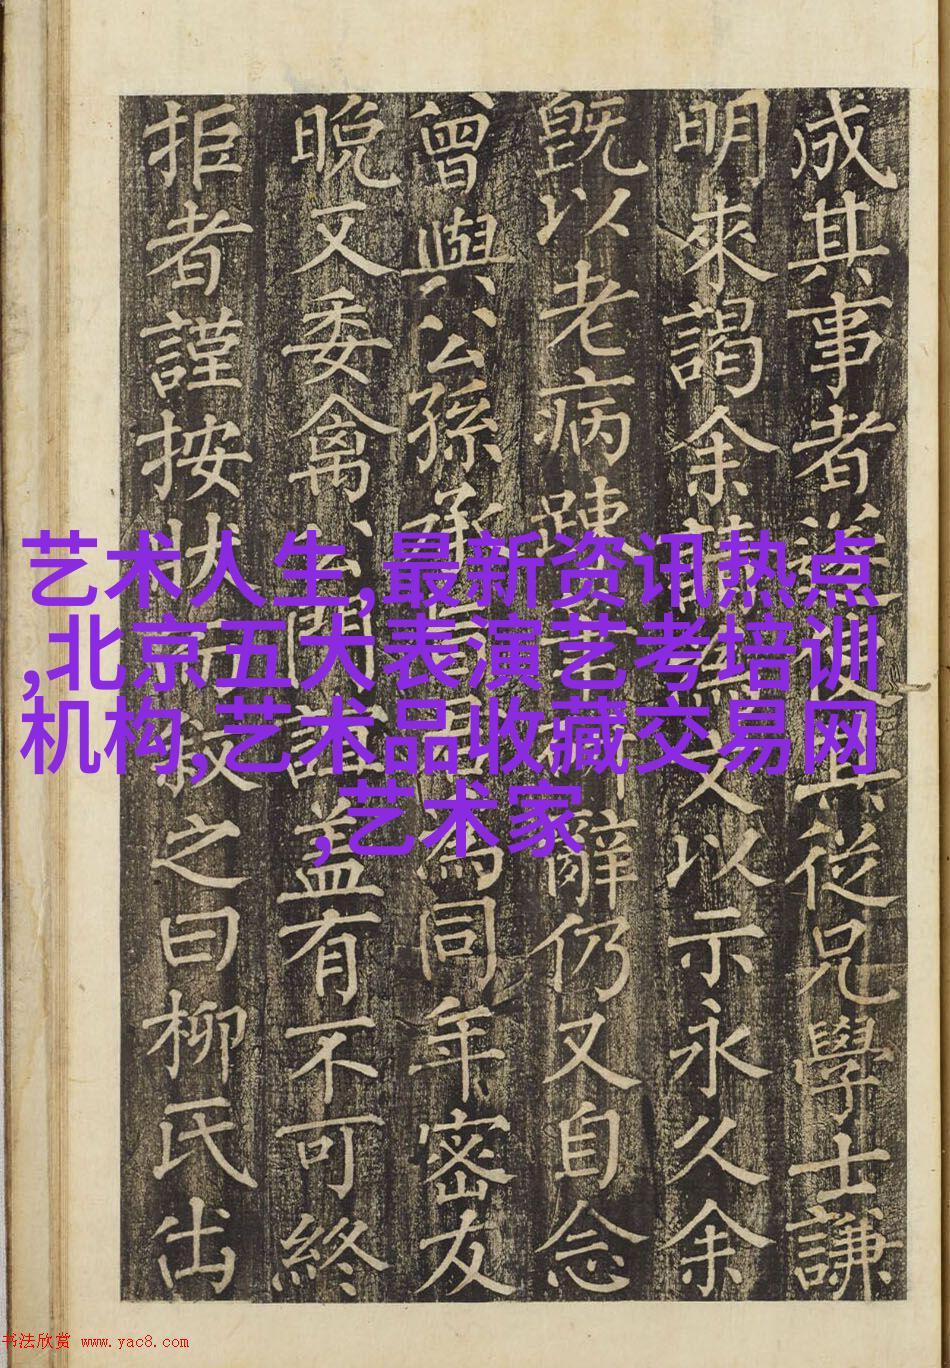 成其事者其從兄學士謙
明來謁余以示永久余
既以老病踈辭仍又自念
曾與公孫為同年密友
晚又委禽公門誼蓋有不可終
拒者謹按狀敘之曰柳氏出
艺术人生,最新资讯热点
,北京五大表演艺考培训
机构,艺术品收藏交易网
,艺术家
书法欣赏 www.yac8.com